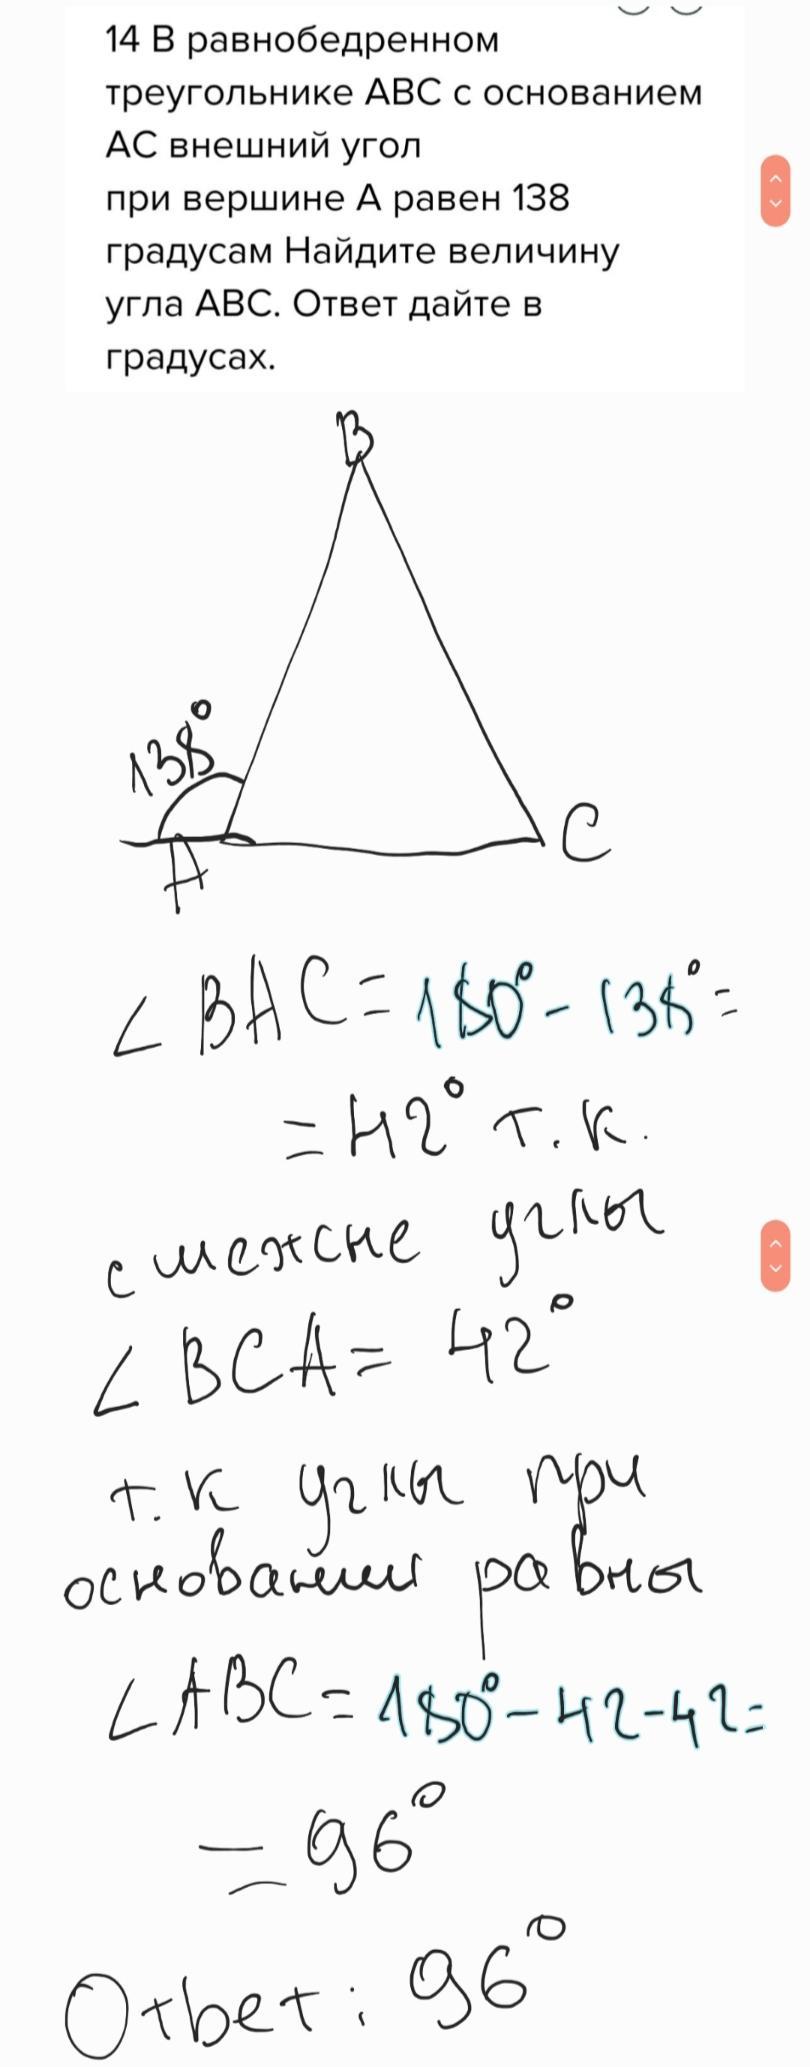 14 В равнобедренном
треугольнике ABC с основанием
AC внешний угол
при вершине A равен 138
градусам Найдите величину
угла ABC. Ответ дайте в
градусах.
B
138°
A
C
∠ BAC = 180° - 138° =
= 42° т.к.
смежне углы
∠ BCA = 42°
т.к углы при
основании равны
∠ABC = 180° - 42 - 42 =
= 96°
Ответ: 96°